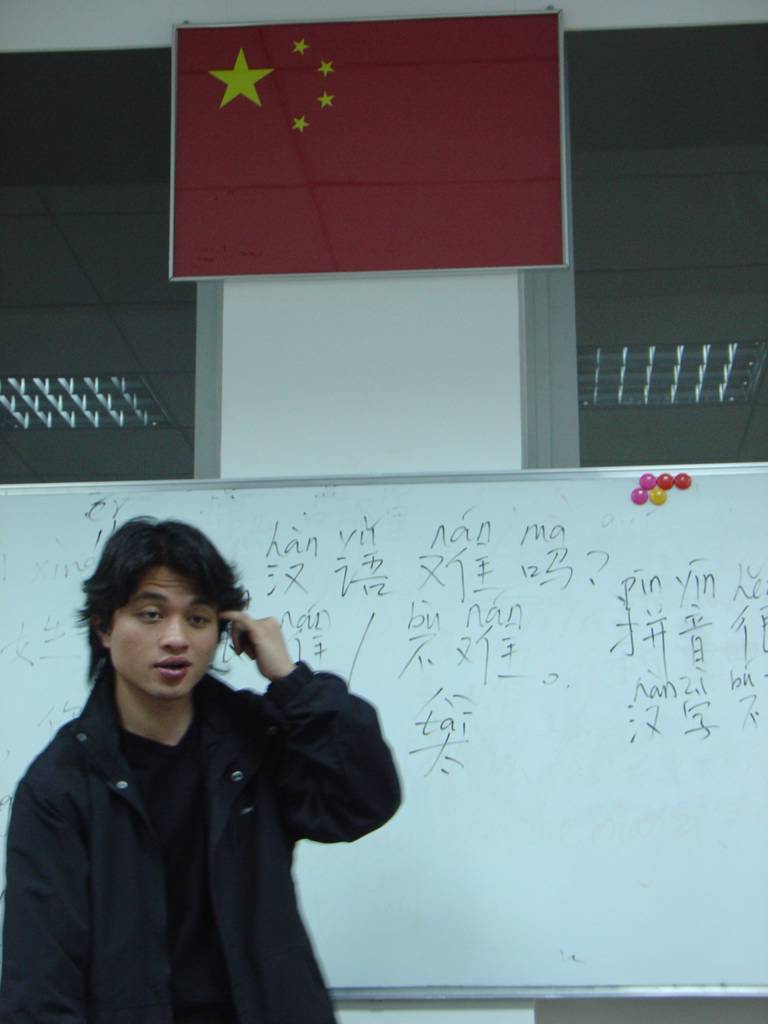 hàn yǔ nán ma
汉 语 难 吗?
nán / bù nán
难 / 不 难。
tài
太
pīn yīn hěn
拼 音 很
hàn zì bù
汉 字 不